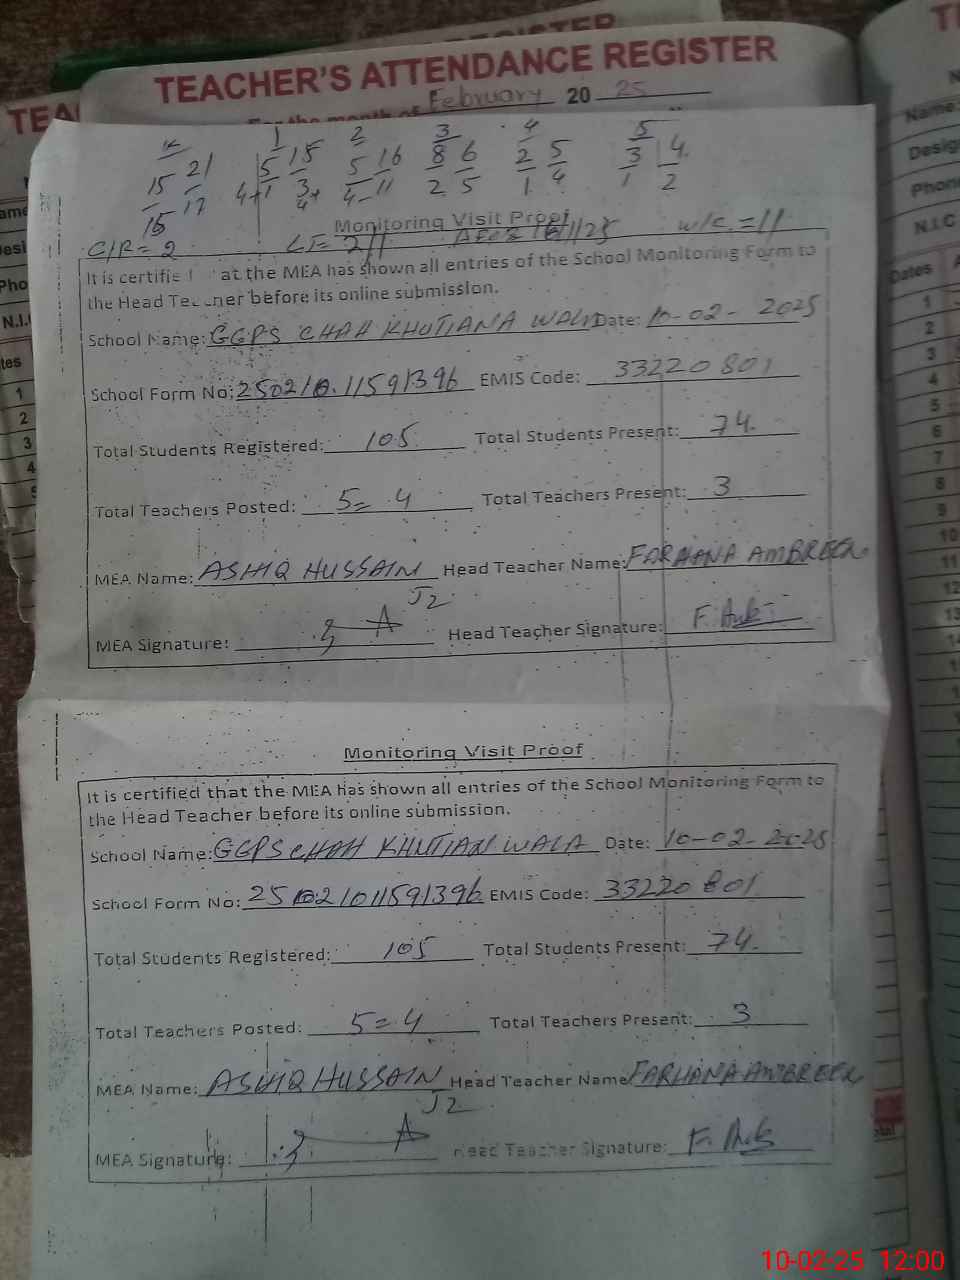 TEACHER'S ATTENDANCE REGISTER
For the month of February 20 25
K 1 2 3 4 5
15 21 5 15 5 16 8 6 2 5 3 4
15 17 4+1 3 4- 11 2 5 1 4 1 2
Monitoring Visit Proof
C/R = 2 W/C = 11
It is certified at the MEA has shown all entries of the School Monitoring Form to
the Head Teacher before its online submission.
School Name: GGPS CHAH KHUTIANA WALA Date: 10-02-2025
School Form No: 250210.11591396 EMIS Code: 33220801
Total Students Registered: 105 Total Students Present: 74.
Total Teachers Posted: 5= 4 Total Teachers Present: 3
MEA Name: ASHIQ HUSSAIN Head Teacher Name: FARHANA AMBREEN
J2
MEA Signature: Head Teacher Signature:
Monitoring Visit Proof
It is certified that the MEA has shown all entries of the School Monitoring Form to
the Head Teacher before its online submission.
School Name: GGPS CHAH KHUTIAN WALA Date: 10-02-2025
School Form No: 2510211011591396 EMIS Code: 33220801
Total Students Registered: 105 Total Students Present: 74.
Total Teachers Posted: 5=4 Total Teachers Present: 3
MEA Name: ASHIQ HUSSAIN Head Teacher Name FARHANA AMBREEN
J2
MEA Signature: Head Teacher Signature:
10-02-25 12:00